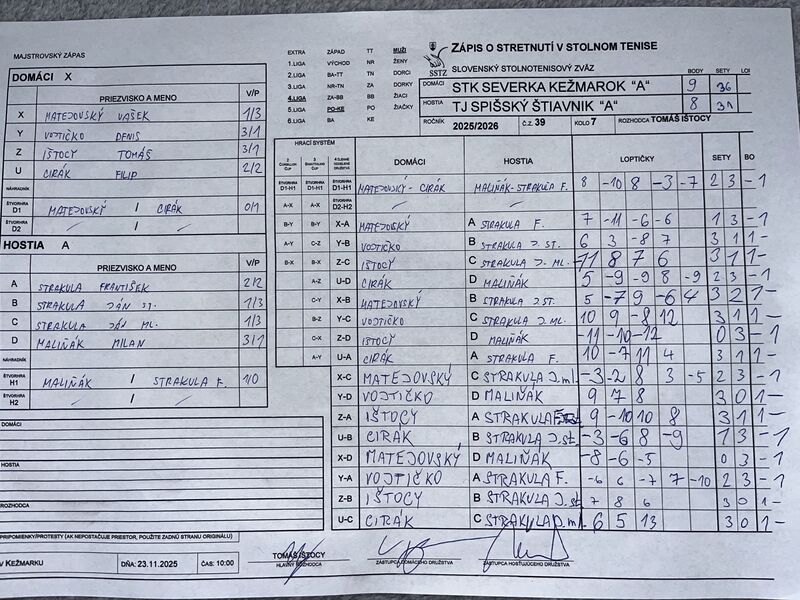 MAJSTROVSKÝ ZÁPAS
EXTRA ZÁPAD TT MUŽI
1.LIGA VÝCHOD NR ŽENY
2.LIGA BA-TT TN DORCI
3.LIGA NR-TN ZA DORKY
4.LIGA ZA-BB BB ŽIACI
5.LIGA PO-KE PO ŽIAČKY
6.LIGA BA KE
SSTZ
ZÁPIS O STRETNUTÍ V STOLNOM TENISE
SLOVENSKÝ STOLNOTENISOVÝ ZVÄZ BODY SETY LOP
DOMÁCI STK SEVERKA KEŽMAROK "A" 9 36
HOSTIA TJ SPIŠSKÝ ŠTIAVNIK "A" 8 31
ROČNÍK 2025/2026 Č.Z. 39 KOLO 7 ROZHODCA TOMÁŠ IŠTOCY
DOMÁCI X
PRIEZVISKO A MENO V/P
X MATEJOVSKÝ VAŠEK 1/3
Y VOJTIČKO DENIS 3/1
Z IŠTOCY TOMÁŠ 3/1
U CIRÁK FILIP 2/2
NÁHRADNÍK
ŠTVORHRA D1 MATEJOVSKÝ / CIRÁK 0/1
ŠTVORHRA D2 /
HOSTIA A
PRIEZVISKO A MENO V/P
A STRAKULA FRANTIŠEK 2/2
B STRAKULA JÁN ST. 1/3
C STRAKULA JÁN ML. 1/3
D MALIŇÁK MILAN 3/1
NÁHRADNÍK
ŠTVORHRA H1 MALIŇÁK / STRAKULA F. 1/0
ŠTVORHRA H2 /
DOMÁCI
HOSTIA
ROZHODCA
PRIPOMIENKY/PROTESTY (AK NEPOSTAČUJE PRIESTOR, POUŽITE ZADNÚ STRANU ORIGINÁLU)
V KEŽMARKU DŇA: 23.11.2025 ČAS: 10:00
HRACÍ SYSTÉM DOMÁCI HOSTIA LOPTIČKY SETY BO
ŠTVORHRA D1-H1 ŠTVORHRA D1-H1 ŠTVORHRA D1-H1 MATEJOVSKÝ - CIRÁK MALIŇÁK-STRAKULA F. 8 -10 8 -3 -7 2 3 - 1
A-X A-X ŠTVORHRA D2-H2
B-Y B-Y X-A MATEJOVSKÝ A STRAKULA F. 7 -11 -6 -6 1 3 - 1
A-Y C-Z Y-B VOJTIČKO B STRAKULA J. ST. 6 3 -8 7 3 1 1 -
B-X B-X Z-C IŠTOCY C STRAKULA J. ML. -11 8 7 6 3 1 1 -
A-Z U-D CIRÁK D MALIŇÁK 5 -9 -9 8 -9 2 3 - 1
C-Y X-B MATEJOVSKÝ B STRAKULA J.ST. 5 -7 9 -6 4 3 2 1 -
B-Z Y-C VOJTIČKO C STRAKULA J. ML. 10 9 -8 12 3 1 1 -
C-X Z-D IŠTOCY D MALIŇÁK -11 -10 -12 0 3 - 1
A-Y U-A CIRÁK A STRAKULA F. 10 -7 11 4 3 1 1 -
X-C MATEJOVSKÝ C STRAKULA J.ml. -3 -2 8 3 -5 2 3 - 1
Y-D VOJTIČKO D MALIŇÁK 9 7 8 3 0 1 -
Z-A IŠTOCY A STRAKULA F. 9 -10 10 8 3 1 1 -
U-B CIRÁK B STRAKULA J.st. -3 -6 8 -9 1 3 - 1
X-D MATEJOVSKÝ D MALIŇÁK -8 -6 -5 0 3 - 1
Y-A VOJTIČKO A STRAKULA F. -6 6 -7 7 -10 2 3 - 1
Z-B IŠTOCY B STRAKULA J.st 7 8 6 3 0 1 -
U-C CIRÁK C STRAKULA J.ml. 6 5 13 3 0 1 -
TOMÁŠ IŠTOCY
HLAVNÝ ROZHODCA ZÁSTUPCA DOMÁCEHO DRUŽSTVA ZÁSTUPCA HOSŤUJÚCEHO DRUŽSTVA